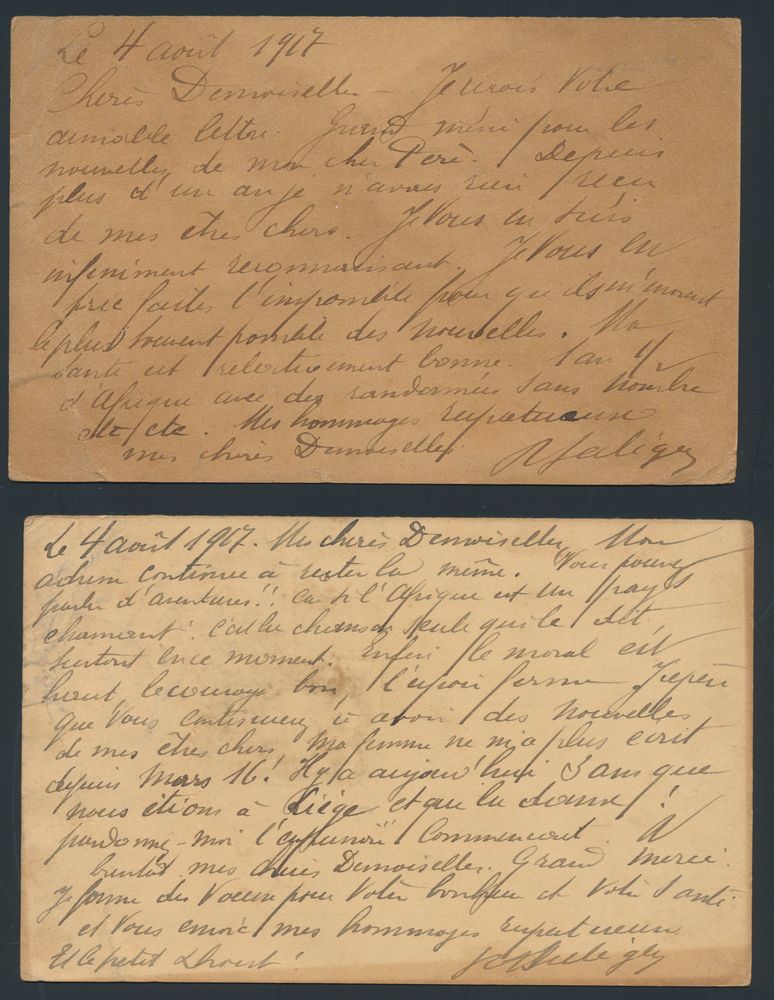 Le 4 août 1917
Chères Demoiselles – Je reçois Votre
aimable lettre. Grand merci pour les
nouvelles de mon cher Père. Depuis
plus d'un an je n'avais rien recu
de mes êtres chers. Je Vous en suis
infiniment reconnaissant. Je Vous en
prie faites l'impossible pour qu'ils m'envoient
le plus souvent possible des nouvelles. Ma
santé est relativement bonne. 1 an 1/2
d'Afrique avec des randonnées sans nombre
etc etc. Mes hommages respectueux
mes chères Demoiselles.
Le 4 août 1917. Mes chères Demoiselles, Mon
adresse continue à rester la même. Vous pouvez
parler d'aventures!! Car si l'Afrique est un pays
charmant! c'est la chanson seule qui le dit,
surtout en ce moment. Enfin le moral est
haut le courage bon, l'espoir ferme. J'espère
que Vous continuerez à avoir des nouvelles
de mes êtres chers, Ma femme ne m'a plus écrit
depuis Mars 16! Il y a aujourd'hui 3 ans que
nous étions à Liège et que la danse!
pardonnez-moi l'expression commencent. A
bientôt mes chères Demoiselles. Grand merci.
Je forme des Voeux pour Votre bonheur et Votre Santé
et Vous envoie mes hommages respectueux
Et le petit